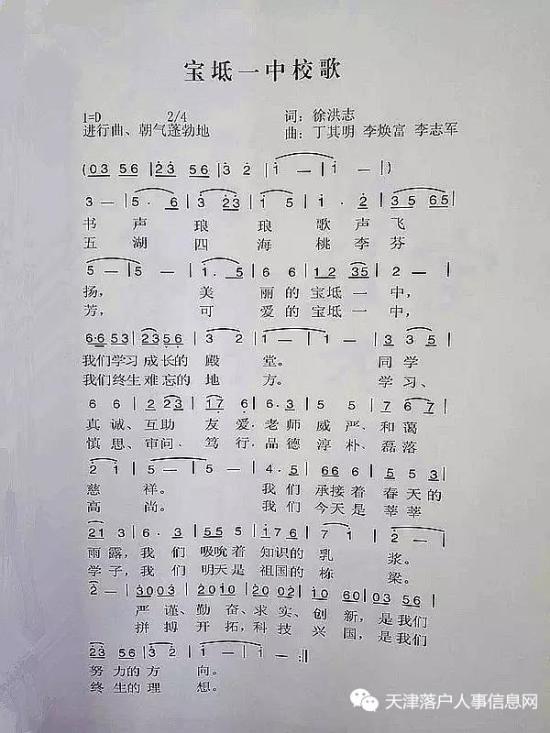 宝坻一中校歌
1=D 2/4 词：徐洪志
进行曲、朝气蓬勃地 曲：丁其明 李焕富 李志军
(03 56 | 23 56 | 3 2 | 1 — | 1 — |)
3 — | 5 · 6 | 3 23 | 1 5 | 1 · 2 | 35 65 |
书声琅琅歌声飞
五湖四海桃李芬
5 — | 5 — | 1· 5 | 6 6 | 12 35 | 2 — |
扬，美丽的宝坻一中，
芳，可爱的宝坻一中，
我们学习成长的殿堂。同学
我们终生难忘的地方。学习、
真诚、互助友爱，老师威严、和蔼
慎思、审问、笃行，品德淳朴、磊落
慈祥。我们承接着春天的
高尚。我们今天是莘莘
雨露，我们吸吮着知识的乳浆。
学子，我们明天是祖国的栋梁。
2 — | 3003 | 2010 | 2002 | 10 60 | 03 56 |
严谨、勤奋、求实、创新，是我们
拼搏开拓，科技兴国，是我们
23 56 | 3 2 | 1 — | 1 — :||
努力的方向。
终生的理想。
天津落户人事信息网